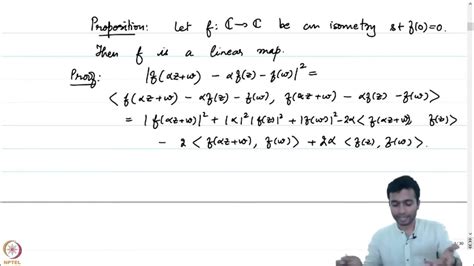 Proposition: Let f: ℂ → ℂ be an isometry s.t f(0)=0.
Then f is a linear map.
Proof: |f(αz+w) - αf(z) - f(w)|² =
< f(αz+w) - αf(z) - f(w), f(αz+w) - αf(z) - f(w)>
= |f(αz+w)|² + |α|² |f(z)|² + |f(w)|² - 2α < f(αz+w), f(z)>
- 2 < f(αz+w), f(w)> + 2α < f(z), f(w)>.
NPTEL